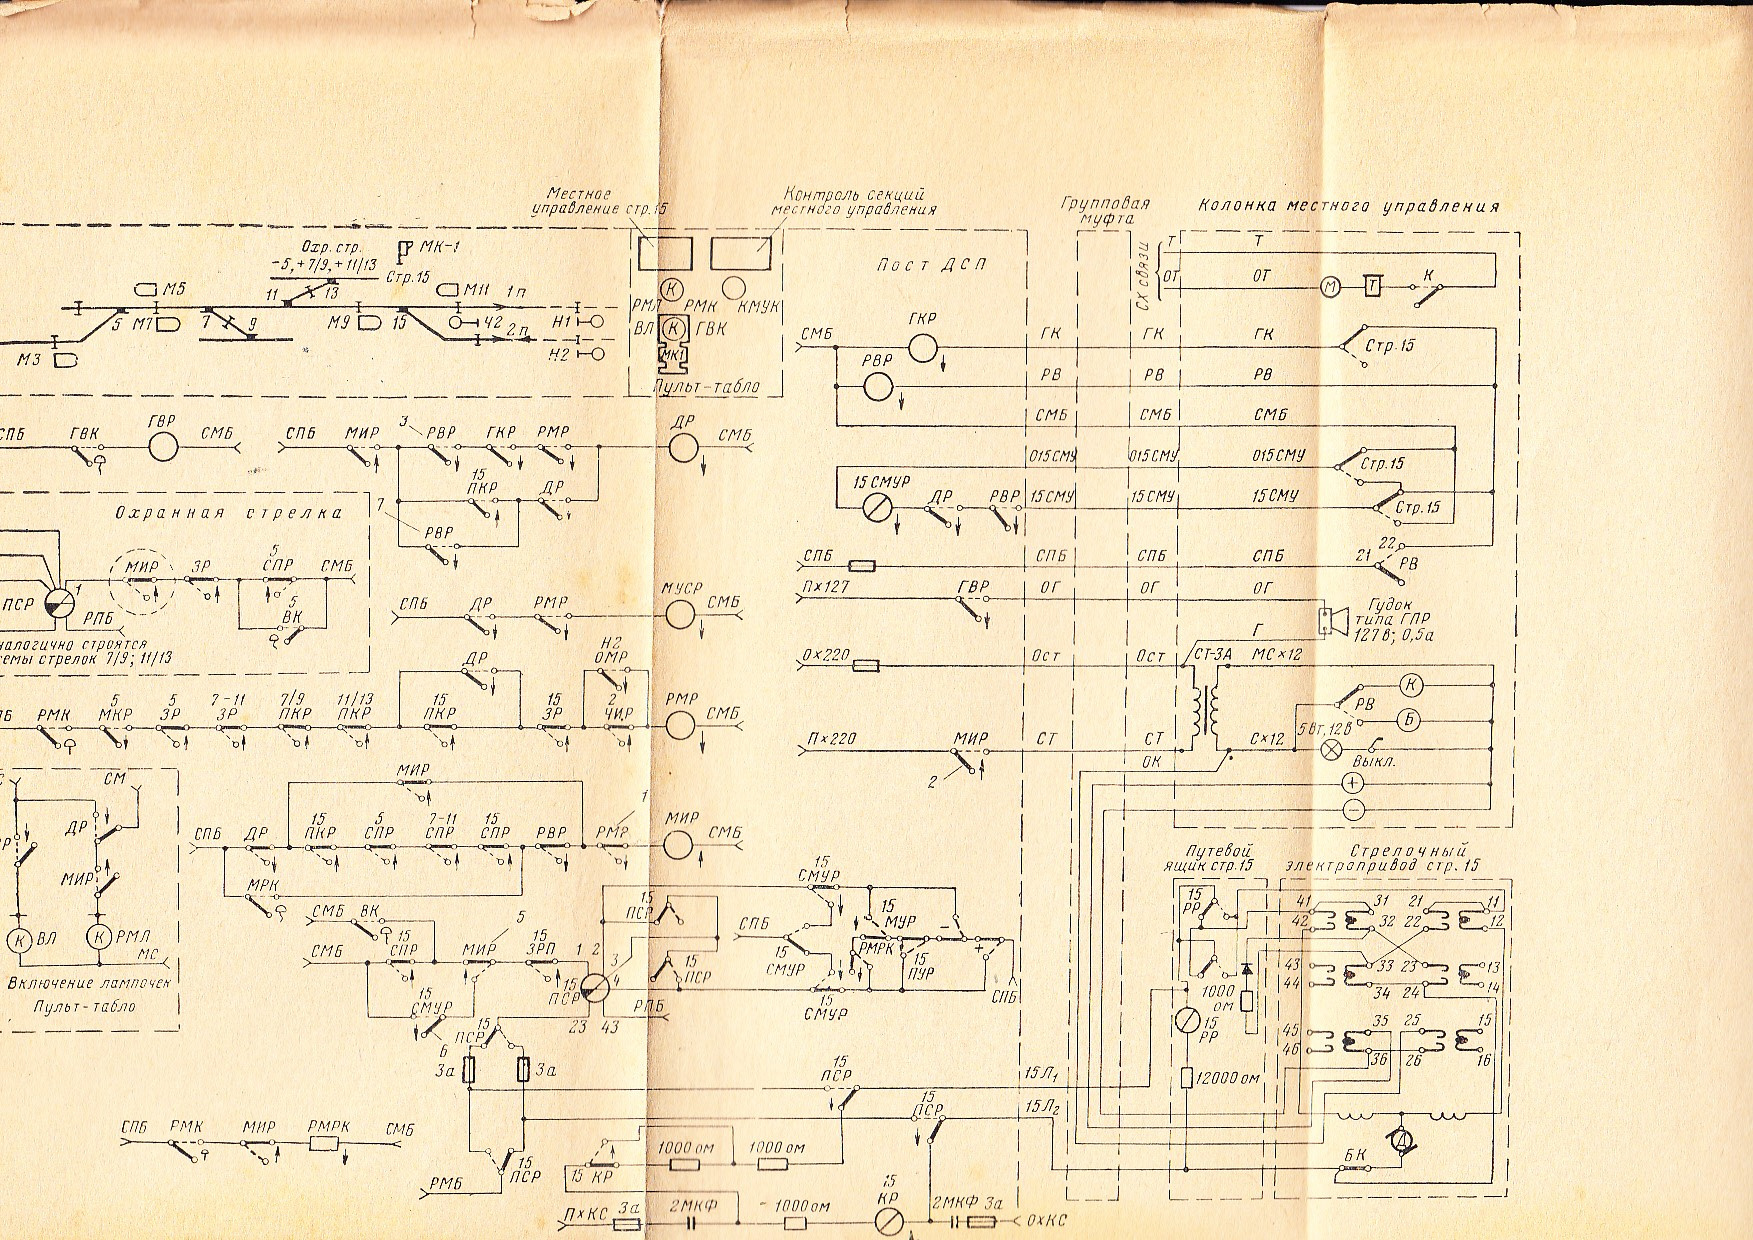 Местное
управление стр.15
Контроль секций
местного управления
Групповая
муфта
Колонка местного управления
Охр. стр.
-5,+7/9,+11/13
МК-1
Стр.15
М5
11
13
М11
1п
5
М7
7
9
М9
15
Ч2
2п
Н1
Н2
М3
РМЛ
К
РМК
КМУК
ВЛ
К
ГВК
МК1
Пульт-табло
Пост ДСП
СХ связи
Т
Т
ОТ
ОТ
М
Т
К
СМБ
ГКР
ГК
ГК
ГК
Стр.15
РВР
РВ
РВ
РВ
СМБ
СМБ
СМБ
015СМУ
015СМУ
015СМУ
Стр.15
15СМУР
ДР
РВР
15СМУ
15СМУ
15СМУ
Стр.15
СПБ
СПБ
СПБ
СПБ
21
22
РВ
Пх127
ГВР
ОГ
ОГ
ОГ
Гудок
типа ГПР
127в; 0,5а
Г
Ох220
Ост
Ост
СТ-3А
МСх12
К
РВ
Б
5Вт,12в
Пх220
МИР
2
СТ
СТ
Сх12
Выкл.
ОК
+
−
СПБ
ГВК
ГВР
СМБ
СПБ
МИР
3
РВР
ГКР
РМР
ДР
СМБ
15
ПКР
ДР
7
РВР
Охранная стрелка
МИР
ЗР
5
СПР
СМБ
5
ВК
ПСР
1
РПБ
налогично строятся
емы стрелок 7/9; 11/13
СПБ
ДР
РМР
МУСР
СМБ
ДР
Н2
ОМР
РМК
5
МКР
5
ЗР
7-11
ЗР
7/9
ПКР
11/13
ПКР
15
ПКР
15
ЗР
2
ЧИР
РМР
СМБ
СМ
ДР
МИР
К
ВЛ
К
РМЛ
МС
Включение лампочек
Пульт-табло
МИР
СПБ
ДР
15
ПКР
5
СПР
7-11
СПР
15
СПР
РВР
РМР
1
МИР
СМБ
МРК
СМБ
ВК
СМБ
15
СПР
МИР
5
15
ЗРП
1
2
3
4
15
ПСР
23
43
РПБ
15
СМУР
6
15
ПСР
15
ПСР
15
СМУР
СПБ
15
СМУР
15
СМУР
15
МУР
РМРК
15
ПУР
−
+
СПБ
15
ПСР
3а
3а
15
ПСР
15
ПСР
15Л1
15Л2
15
ПСР
РМБ
СПБ
РМК
МИР
РМРК
СМБ
1000 ом
1000 ом
15 КР
ПхКС
3а
2МКФ
1000ом
15
КР
2МКФ
3а
ОхКС
Путевой
ящик стр.15
Стрелочный
электропривод стр.15
15
РР
1000
ом
15
РР
12000ом
41
31
21
11
42
32
22
12
43
33
23
13
44
34
24
14
45
35
25
15
46
36
26
16
Д
БК